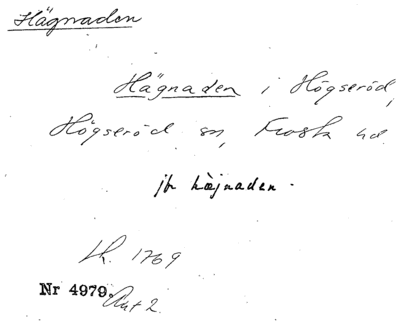 Hägnaden
Hägnaden i Högseröd,
Högseröd sn, Frosta hd.
jfr häjnaden.
1769
Nr 4979. Akt 2.